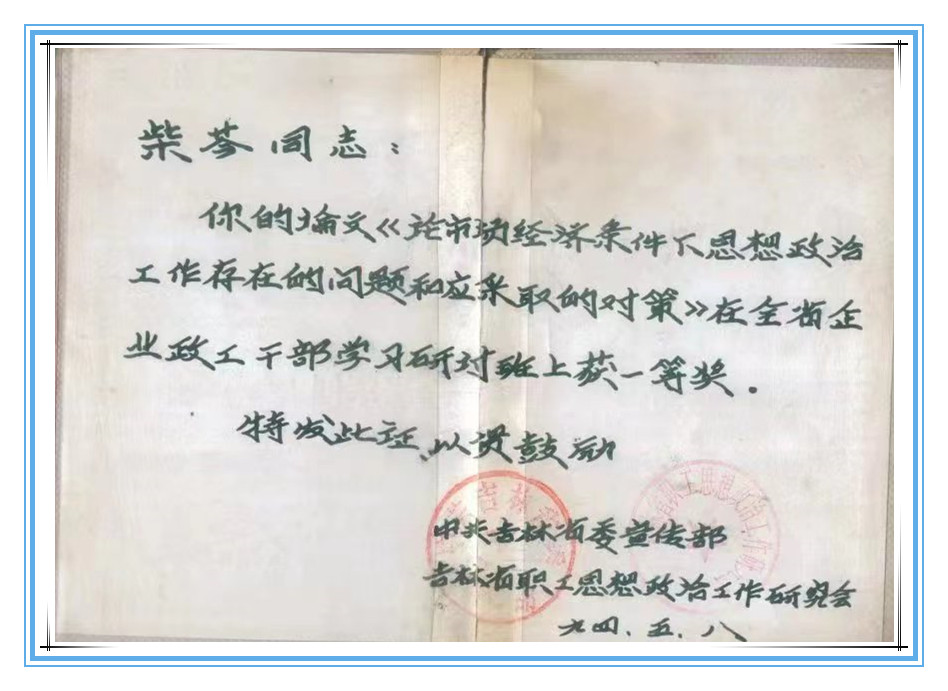 柴芩同志：
你的论文《论市场经济条件下思想政治
工作存在的问题和应采取的对策》在全省企
业政工干部学习研讨班上获一等奖.
特发此证、以资鼓励
中共吉林省委宣传部
吉林省职工思想政治工作研究会
九四.五.八